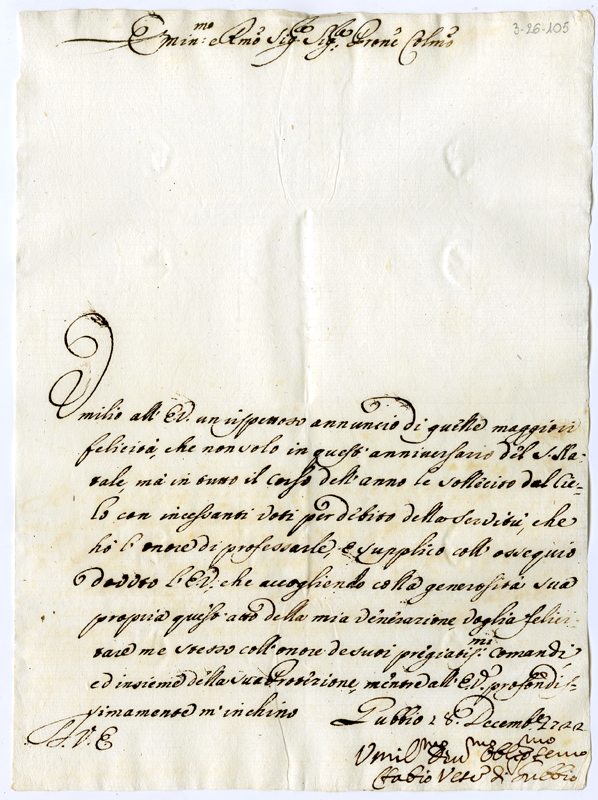 3-26-105
Emin:mo e Rmo Sig.re Sig.re Prone Colmo
Umilio all' E.V. un rispettoso annuncio di quelle maggiori
felicità, che non solo in quest' anniversario del S. Na-
tale, mà in tutto il corso dell' anno le sollecito dal Cie-
lo con incessanti voti per debito della servitù, che
hò l' onore di professarle, e supplico coll' ossequio
dovuto l' E.V., che accogliendo colla generosità sua
propria quest' atto della mia venerazione voglia felici-
tare me stesso coll' onore de suoi pregiatis.mi comandi,
ed insieme della sua Protezione, mentre all' E.V. profondis-
simamente m' inchino
Gubbio 18. Decembre 1722
S.V.E
Umil.mo Dev.mo Oblig.mo servo
Fabio Vesc.o di Gubbio